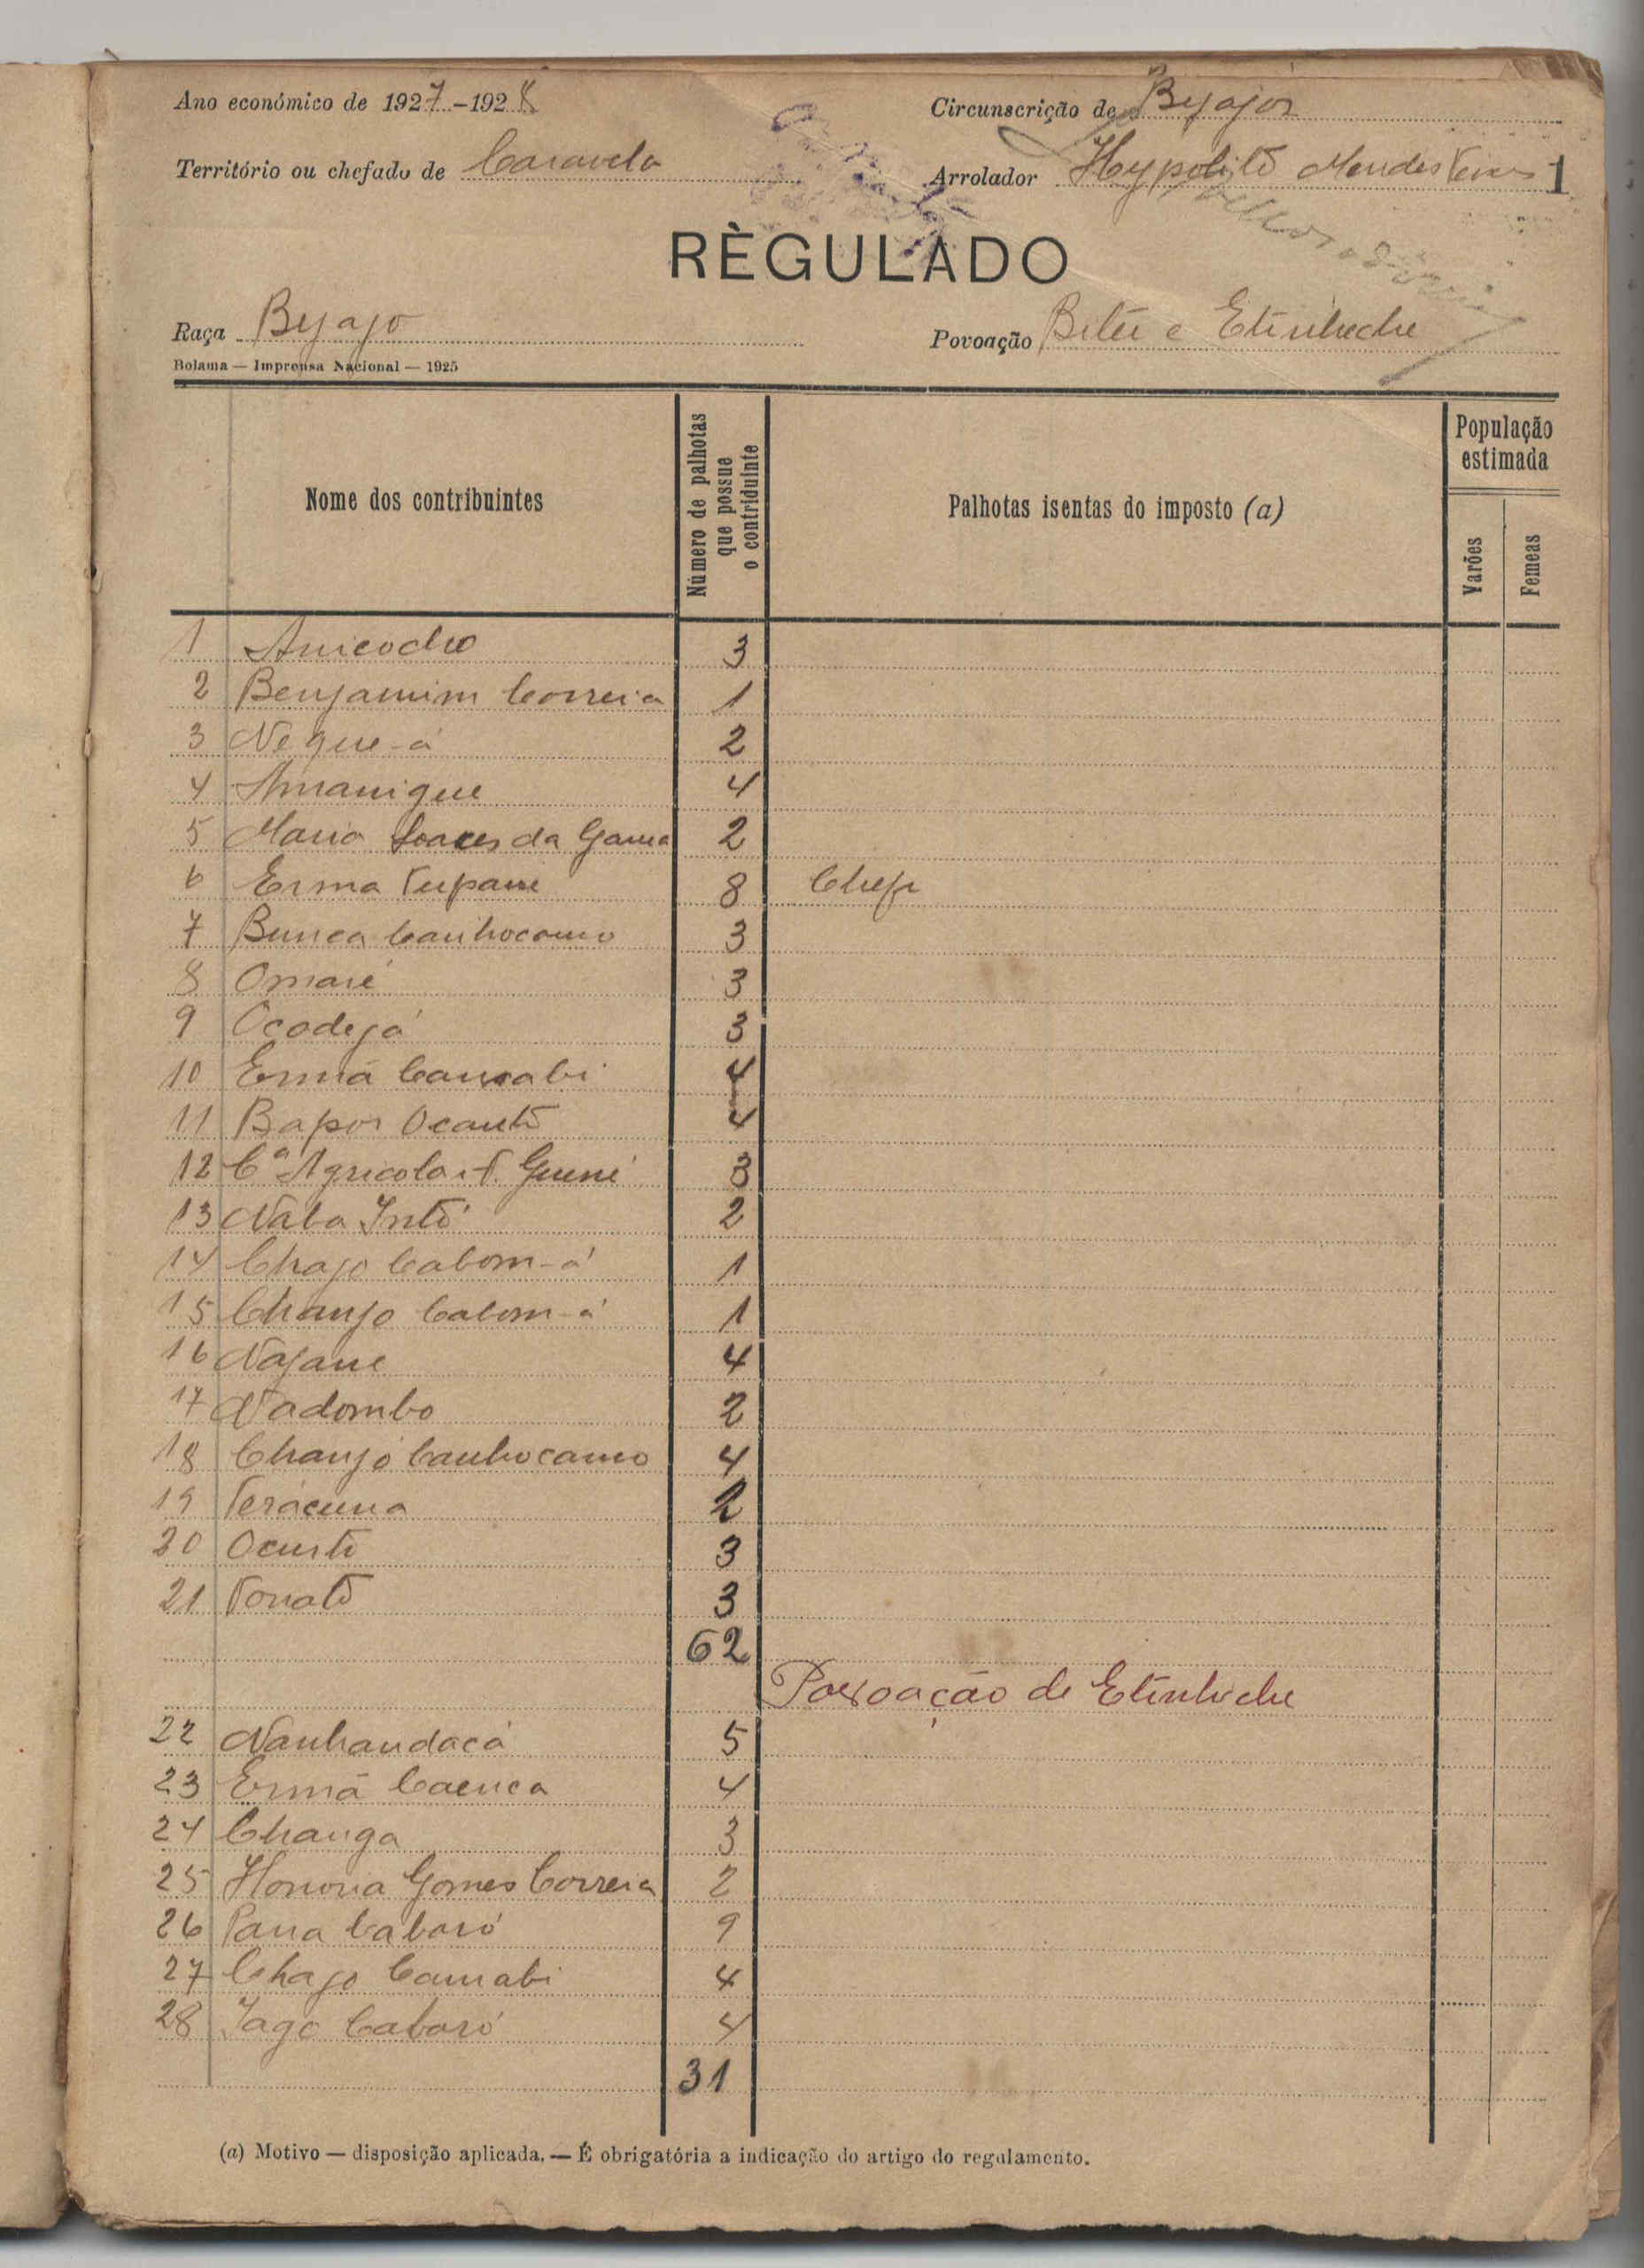 Ano económico de 1927-1928
Circunscrição de Byajós
Território ou chefado de Caravela
Arrolador Hypolito Mendes 1
RÈGULADO
Raça Byajo
Povoação e Etinheche
Bolama — Imprensa Nacional — 1925
Nome dos contribuintes
Número de palhotas que possue o contriduinte
Palhotas isentas do imposto (a)
População estimada
Varões
Femeas
1 3
2 Benjamim Correia 1
3 Neque-á 2
4 Amanique 4
5 Maria Soares da Gama 2
6 Erma Tupane 8 Chefe
7 Bunca Canhocamo 3
8 Omaré 3
9 Ocodejá 3
10 Ermã Camabi 4
11 Bapor Ocanto 4
12 Cª Agricola F. Guiné 3
13 Naba Intó 2
14 Chajo Cabom-á 1
15 Chanjo Cabom-á 1
16 Najane 4
17 Nadombo 2
18 Chanjó Canhocamo 4
19 Terácuna 2
20 Ocuito 3
21 Tonato 3
62
Povoação de Etinheche
22 Nanhandacá 5
23 Ermã Caenca 4
24 Changa 3
25 Honoria Gomes Correia 2
26 Pana Cabaró 9
27 Chajo Camabi 4
28 Iago Cabaró 4
31
(a) Motivo — disposição aplicada. — É obrigatória a indicação do artigo do regulamento.